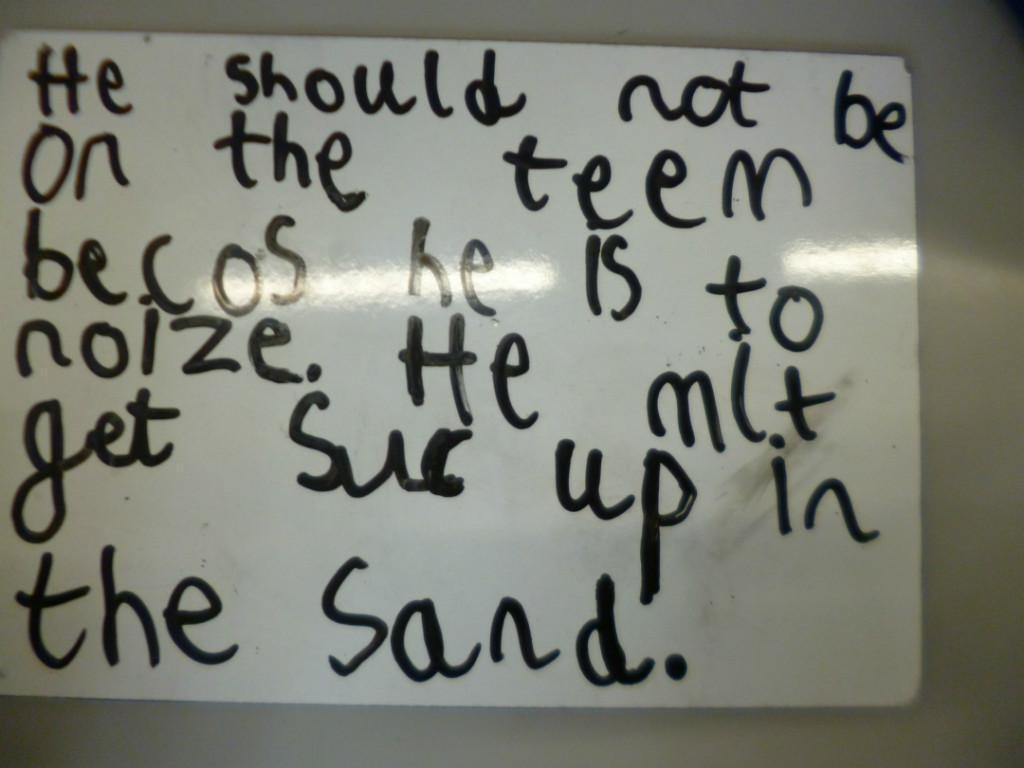 He should not be
on the teem
becos he is to
noize. He mit
get suc up in
the sand.